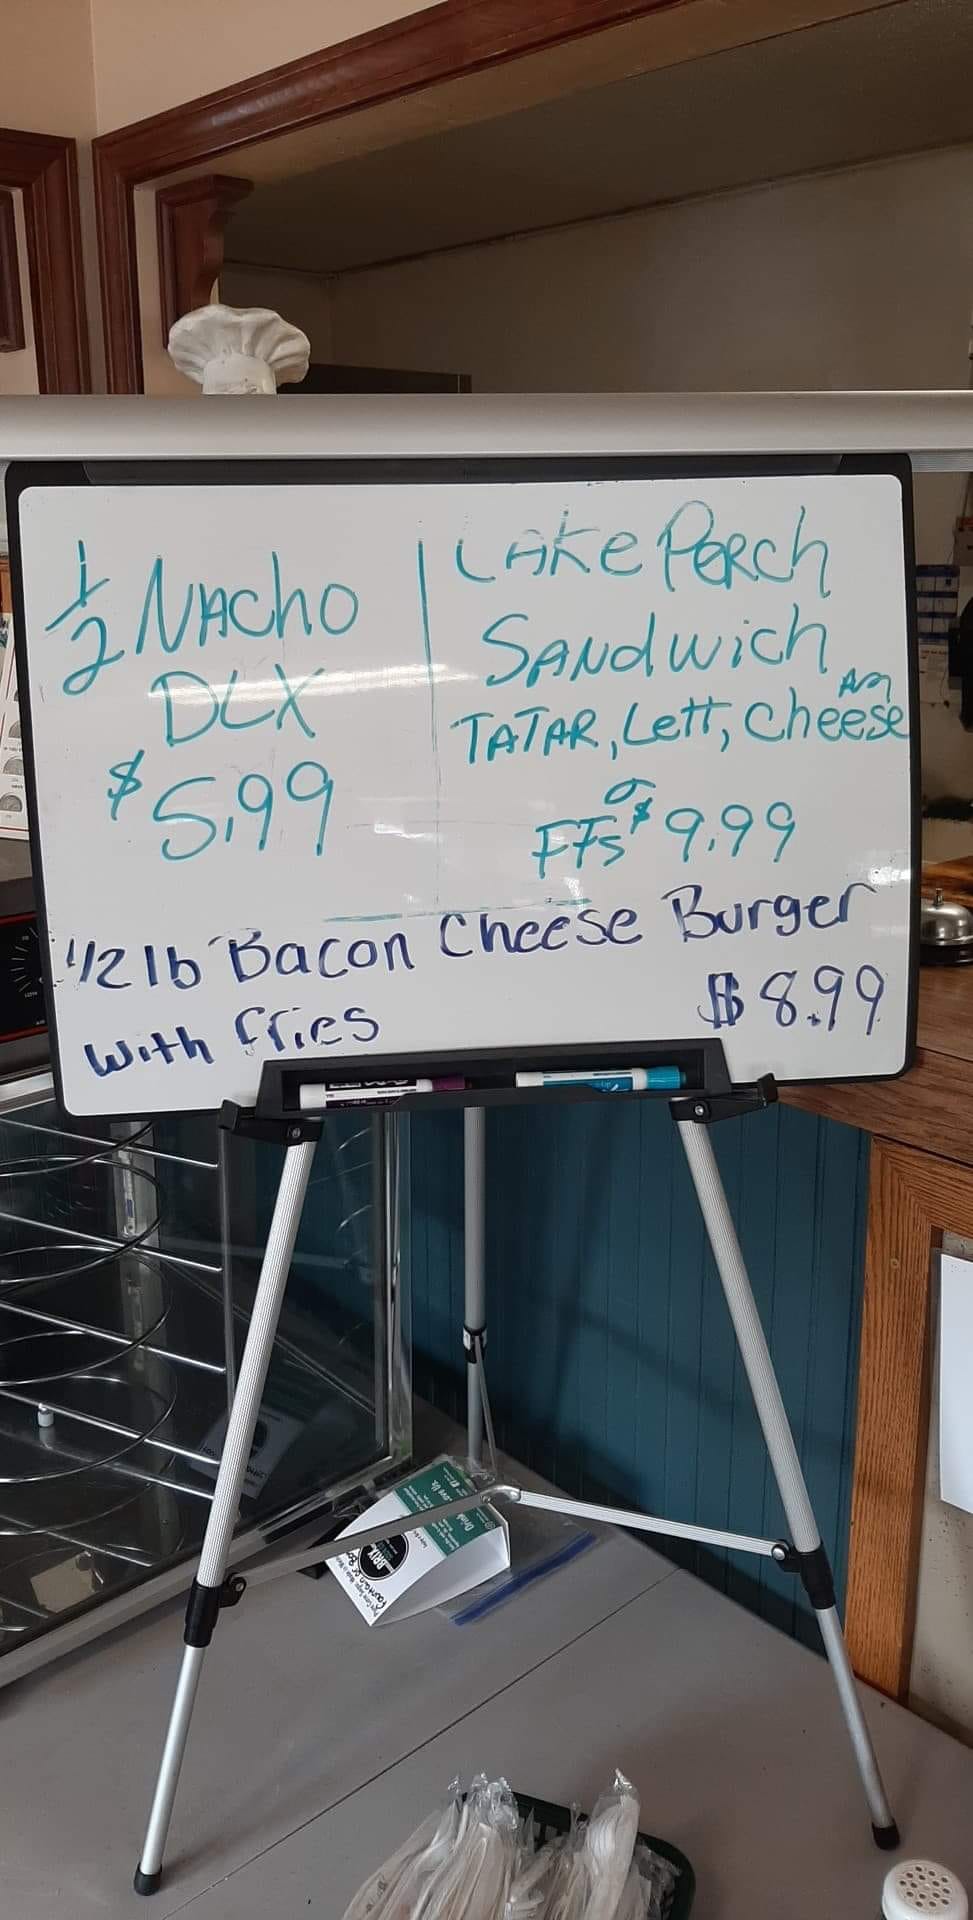 1/2 NAcho
DLX
$5.99
LAKe PeRch
SANdwich
Am
TATAR, Lett, cheese
FFs $9.99
1/2 lb Bacon Cheese Burger
with fries
$8.99
BRIX